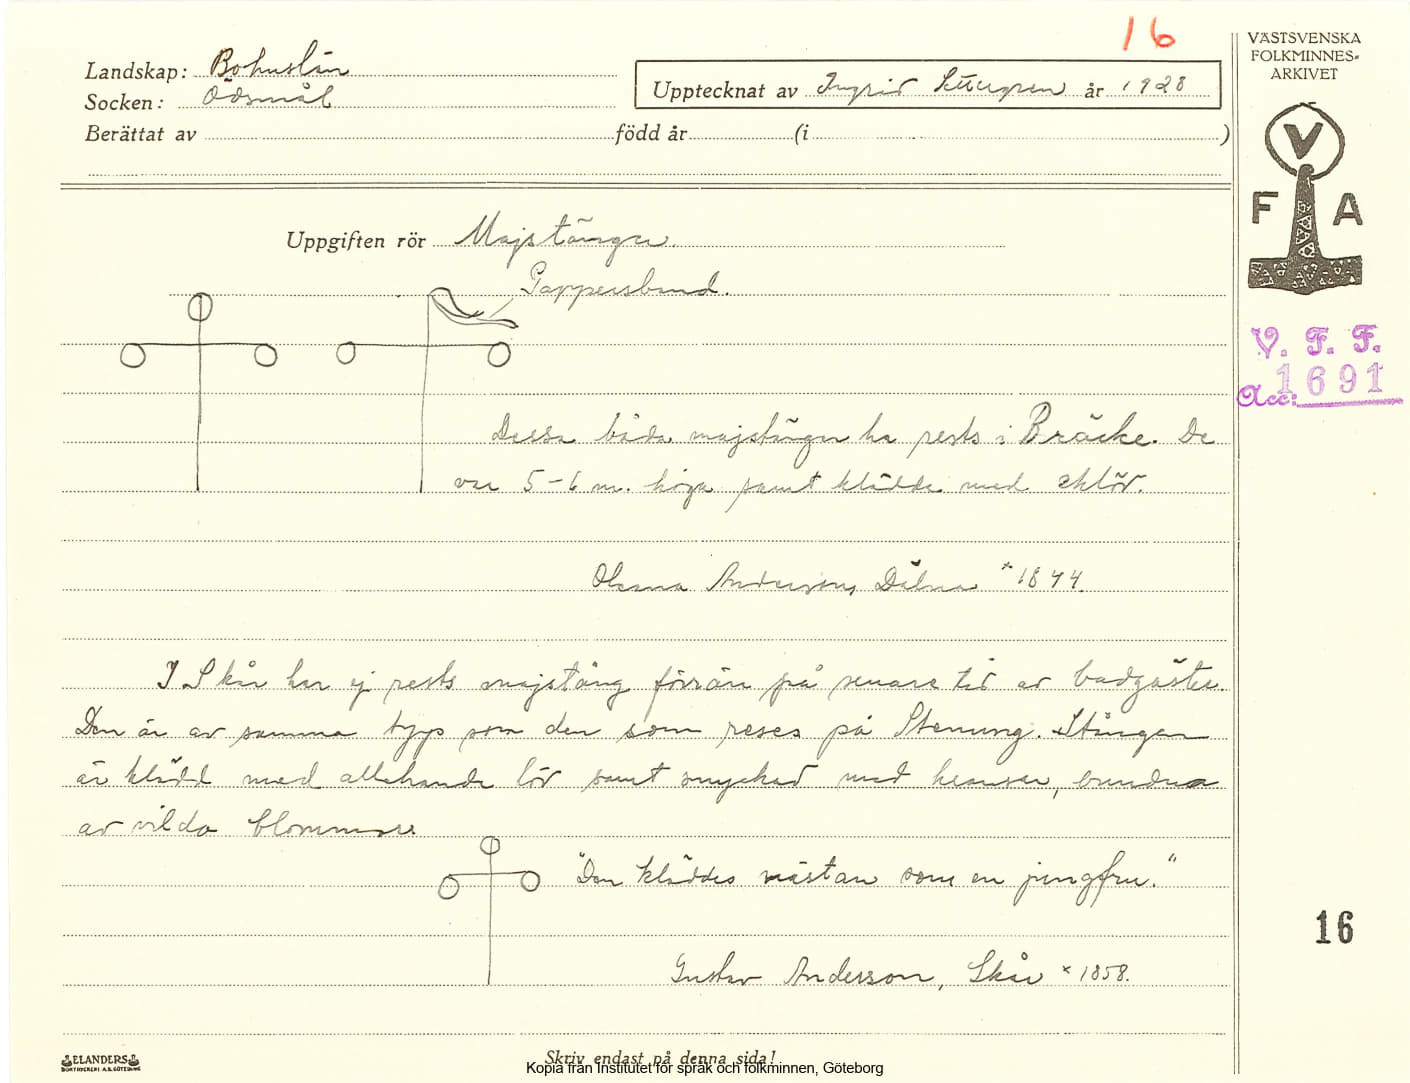 16
VÄSTSVENSKA
FOLKMINNES-
ARKIVET
Landskap: Bohuslän
Socken: Ödsmål
Upptecknat av Ingrid år 1928
Berättat av född år (i )
V
F A
Uppgiften rör Majstänger.
Pappersband.
V. F. F.
Acc: 1691
Dessa båda majstänger ha rests i Bräcke. De
var 5-6 m. höga samt klädda med eklöv.
Anderson, * 1844.
I Skår har ej rests majstång förrän på senare tid av badgäster.
Den är av samma typ som den som reses på Stenung. Stången
är klädd med allehanda löv samt smyckad med kransar, bundna
av vilda blommor.
"Den kläddes nästan som en jungfru."
16
Gustav Andersson, Skår * 1858.
Skriv endast på denna sida!
ELANDERS
BOKTRYCKERI A.B. GÖTEBORG
Kopia från Institutet för språk och folkminnen, Göteborg